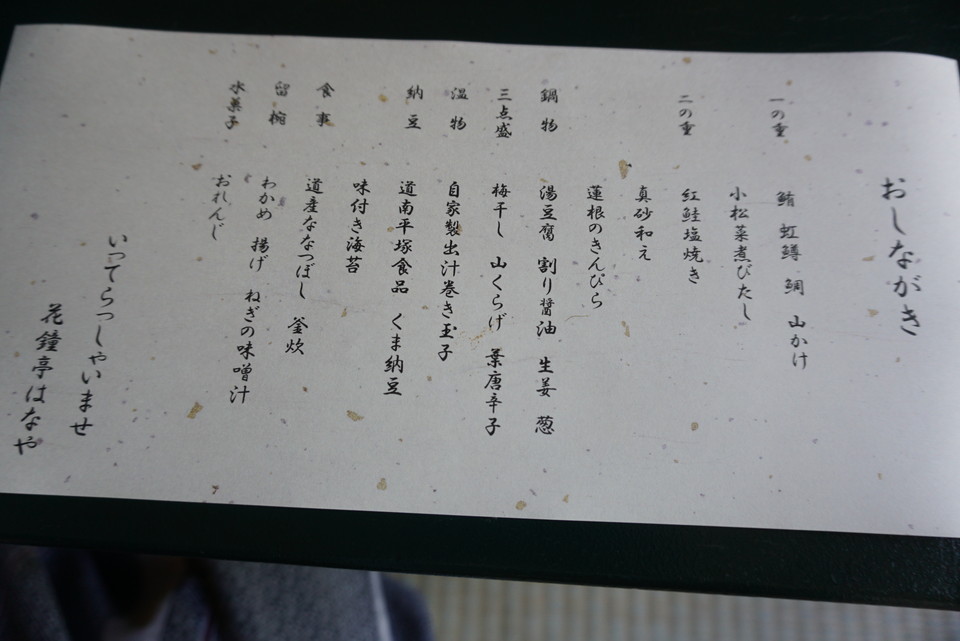 おしながき
一の重 鮪 虹鱒 鯛 山かけ
小松菜煮びたし
二の重 紅鮭塩焼き
真砂和え
蓮根のきんぴら
鍋物 湯豆腐 割り醤油 生姜 葱
三点盛 梅干し 山くらげ 葉唐辛子
温物 自家製出汁巻き玉子
納豆 道南平塚食品 くま納豆
味付き海苔
食事 道産ななつぼし 釜炊
留椀 わかめ 揚げ ねぎの味噌汁
水菓子 おれんじ
いってらっしゃいませ
花鐘亭はなや